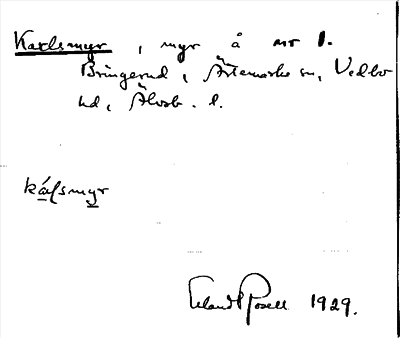 Karlsmyr, myr å nr 1.
Bringerud, Ärtemarks sn, Vedbo
hd, Älvsb. l.
kálsmyr
Erland Rosell 1929.